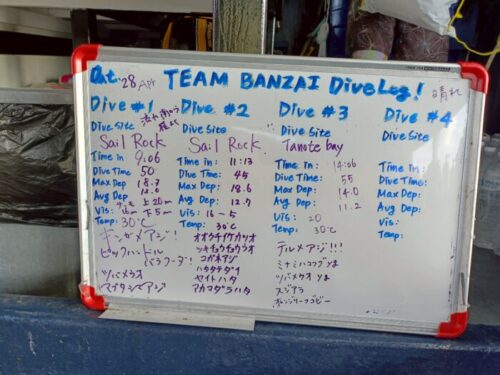 Dat. '28 Apr TEAM BANZAI DiveLog! 晴れ
Dive #1
Dive Site
Sail Rock
Time in 9:06
Dive Time 50
Max Dep 18.7
Avg Dep
Vis: 上20m
下5m
Temp: 30℃
ギンガメアジ!
ピックハンドル
バラクーダ!
ツバメウオ
Dive #2
Dive Site
Sail Rock.
Time in: 11:13
Dive Time: 45
Max Dep: 18.6
Avg Dep: 12.7
Vis: 16-5
Temp: 30℃
オオクチイケカツオ
ツキチョウチョウウオ
コガネアジ
ハタタテダイ
ヤイトハタ
アカマダラハタ
Dive #3
Dive Site
Tanote bay
Time in: 14:06
Dive Time: 55
Max Dep: 14.0
Avg Dep: 11.2
Vis: 20
Temp: 30℃
テルメアジ!!!
ツバメウオ
スジアラ
Dive #4
Dive Site
Time in:
Dive Time:
Max Dep:
Avg Dep:
Vis:
Temp: